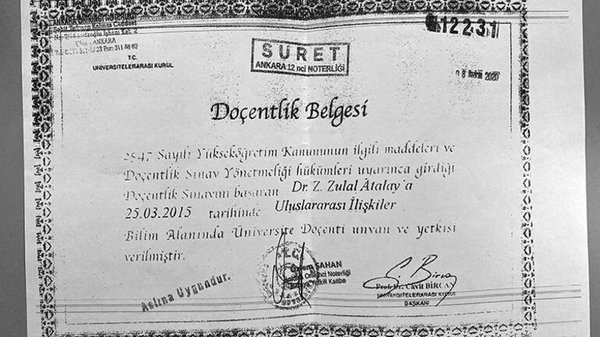 T.C.
ÜNİVERSİTELERARASI KURUL
SURET
ANKARA 12 nci NOTERLİĞİ
12231
Doçentlik Belgesi
2547 Sayılı Yükseköğretim Kanununun ilgili maddeleri ve
Doçentlik Sınav Yönetmeliği hükümleri uyarınca girdiği
Doçentlik Sınavını başaran Dr. Z. Zulal Atalay'a
25.03.2015 tarihinde Uluslararası İlişkiler
Bilim Alanında Üniversite Doçenti unvan ve yetkisi
verilmiştir.
Aslına Uygundur.
ŞAHAN
Noterliği
Katibe
Prof. Dr. Cavit BİRCAN
ÜNİVERSİTELERARASI KURUL
BAŞKANI